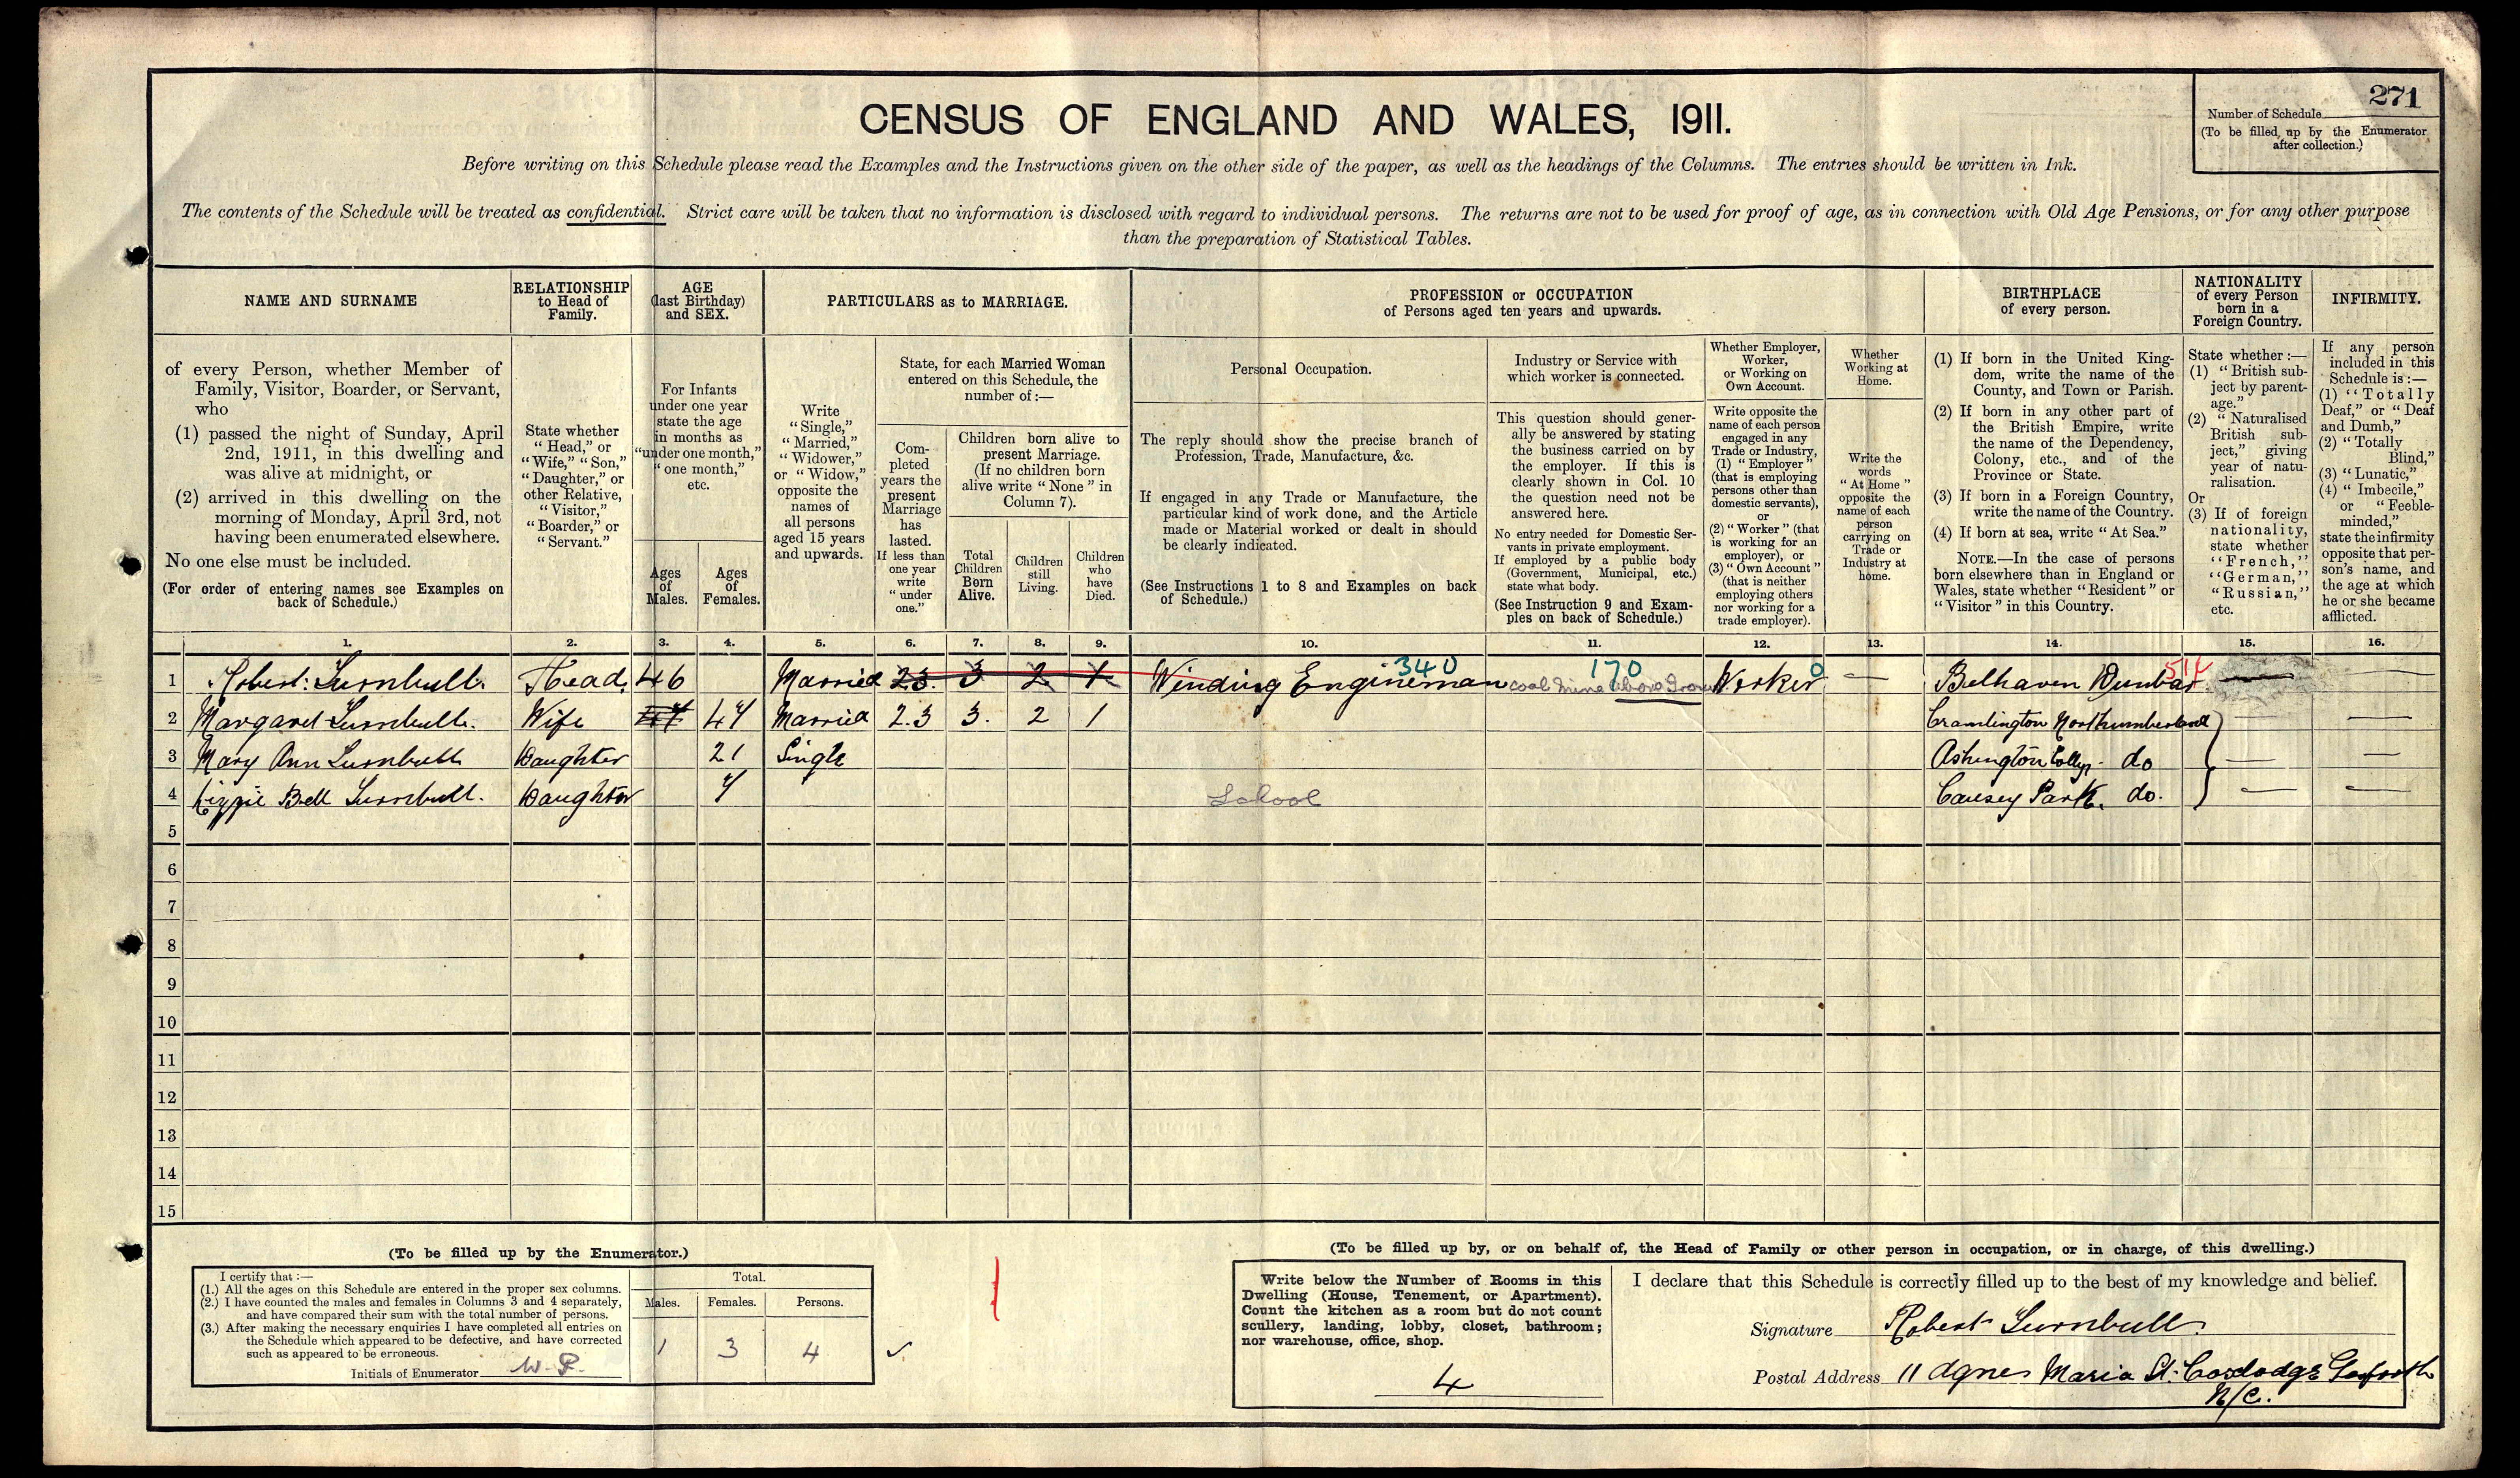 271
Number of Schedule
(To be filled up by the Enumerator
after collection.)
CENSUS OF ENGLAND AND WALES, 1911.
Before writing on this Schedule please read the Examples and the Instructions given on the other side of the paper, as well as the headings of the Columns. The entries should be written in Ink.
The contents of the Schedule will be treated as confidential. Strict care will be taken that no information is disclosed with regard to individual persons. The returns are not to be used for proof of age, as in connection with Old Age Pensions, or for any other purpose
than the preparation of Statistical Tables.
NAME AND SURNAME
of every Person, whether Member of
Family, Visitor, Boarder, or Servant,
who
(1) passed the night of Sunday, April
2nd, 1911, in this dwelling and
was alive at midnight, or
(2) arrived in this dwelling on the
morning of Monday, April 3rd, not
having been enumerated elsewhere.
No one else must be included.
(For order of entering names see Examples on
back of Schedule.)
RELATIONSHIP
to Head of
Family.
State whether
"Head," or
"Wife," "Son,"
"Daughter," or
other Relative,
"Visitor,"
"Boarder," or
"Servant."
AGE
(last Birthday)
and SEX.
For Infants
under one year
state the age
in months as
"under one month,"
"one month,"
etc.
Ages
of
Males.
Ages
of
Females.
PARTICULARS as to MARRIAGE.
Write
"Single,"
"Married,"
"Widower,"
or "Widow,"
opposite the
names of
all persons
aged 15 years
and upwards.
State, for each Married Woman
entered on this Schedule, the
number of:—
Com-
pleted
years the
present
Marriage
has
lasted.
If less than
one year
write
"under
one."
Children born alive to
present Marriage.
(If no children born
alive write "None" in
Column 7).
Total
Children
Born
Alive.
Children
still
Living.
Children
who
have
Died.
PROFESSION or OCCUPATION
of Persons aged ten years and upwards.
Personal Occupation.
The reply should show the precise branch of
Profession, Trade, Manufacture, &c.
If engaged in any Trade or Manufacture, the
particular kind of work done, and the Article
made or Material worked or dealt in should
be clearly indicated.
(See Instructions 1 to 8 and Examples on back
of Schedule.)
Industry or Service with
which worker is connected.
This question should gener-
ally be answered by stating
the business carried on by
the employer. If this is
clearly shown in Col. 10
the question need not be
answered here.
No entry needed for Domestic Ser-
vants in private employment.
If employed by a public body
(Government, Municipal, etc.)
state what body.
(See Instruction 9 and Exam-
ples on back of Schedule.)
Whether Employer,
Worker,
or Working on
Own Account.
Write opposite the
name of each person
engaged in any
Trade or Industry,
(1) "Employer"
(that is employing
persons other than
domestic servants),
or
(2) "Worker" (that
is working for an
employer), or
(3) "Own Account"
(that is neither
employing others
nor working for a
trade employer).
Whether
Working at
Home.
Write the
words
"At Home"
opposite the
name of each
person
carrying on
Trade or
Industry at
home.
BIRTHPLACE
of every person.
(1) If born in the United King-
dom, write the name of the
County, and Town or Parish.
(2) If born in any other part of
the British Empire, write
the name of the Dependency,
Colony, etc., and of the
Province or State.
(3) If born in a Foreign Country,
write the name of the Country.
(4) If born at sea, write "At Sea."
NOTE.—In the case of persons
born elsewhere than in England or
Wales, state whether "Resident" or
"Visitor" in this Country.
NATIONALITY
of every Person
born in a
Foreign Country.
State whether:—
(1) "British sub-
ject by parent-
age."
(2) "Naturalised
British sub-
ject," giving
year of natu-
ralisation.
Or
(3) If of foreign
nationality,
state whether
"French,"
"German,"
"Russian,"
etc.
INFIRMITY.
If any person
included in this
Schedule is:—
(1) "Totally
Deaf," or "Deaf
and Dumb,"
(2) "Totally
Blind,"
(3) "Lunatic,"
(4) "Imbecile,"
or "Feeble-
minded,"
state the infirmity
opposite that per-
son's name, and
the age at which
he or she became
afflicted.
1. 2. 3. 4. 5. 6. 7. 8. 9. 10. 11. 12. 13. 14. 15. 16.
1 Robert Turnbull. Head. 46 Married 23. 3 2 1 Winding Engineman 340 Coal Mine above Ground 170 Worker 0 — Belhaven Dunbar 514 — —
2 Margaret Turnbull. Wife 47 Married 23 3. 2 1 Cramlington Northumberland — —
3 Mary Ann Turnbull Daughter 21 Single Ashington Colly. do — —
4 Lizzie Bell Turnbull. Daughter 7 School Causey Park. do. — —
5
6
7
8
9
10
11
12
13
14
15
(To be filled up by the Enumerator.)
I certify that:—
(1.) All the ages on this Schedule are entered in the proper sex columns.
(2.) I have counted the males and females in Columns 3 and 4 separately,
and have compared their sum with the total number of persons.
(3.) After making the necessary enquiries I have completed all entries on
the Schedule which appeared to be defective, and have corrected
such as appeared to be erroneous.
Initials of Enumerator W. P.
Total.
Males. Females. Persons.
1 3 4
(To be filled up by, or on behalf of, the Head of Family or other person in occupation, or in charge, of this dwelling.)
Write below the Number of Rooms in this
Dwelling (House, Tenement, or Apartment).
Count the kitchen as a room but do not count
scullery, landing, lobby, closet, bathroom;
nor warehouse, office, shop.
4
I declare that this Schedule is correctly filled up to the best of my knowledge and belief.
Signature Robert Turnbull.
Postal Address 11 Agnes Maria St. Coxlodge Gosforth
N/C.